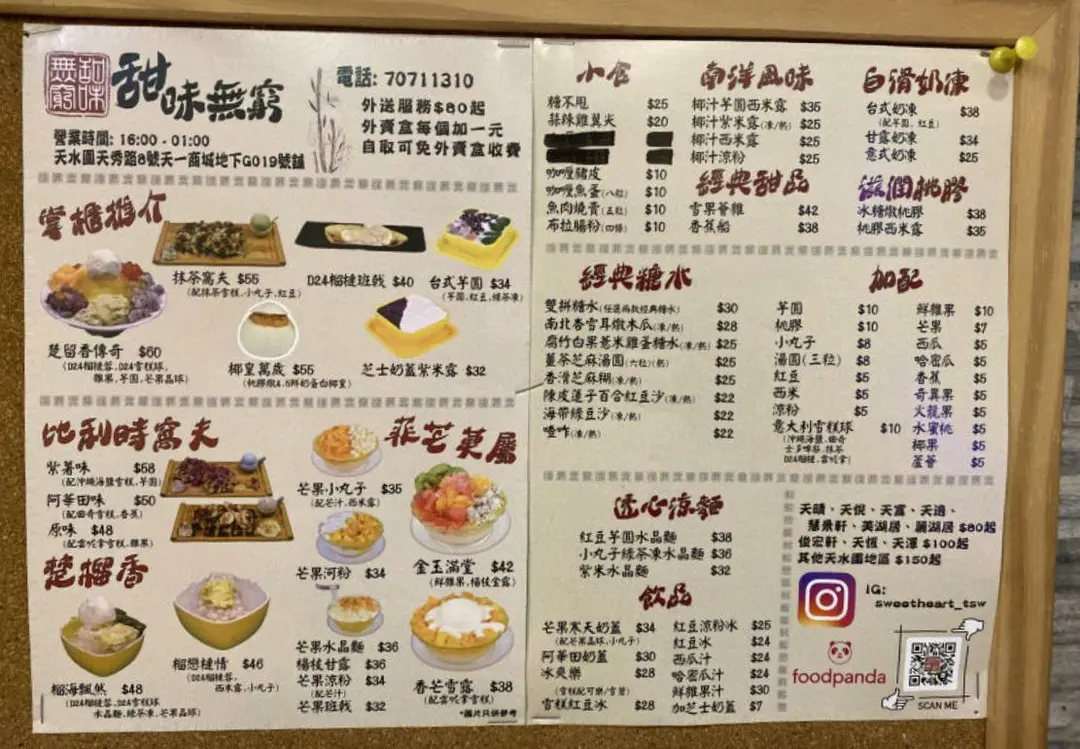 甜味無窮
電話: 70711310
外送服務$80起
外賣盒每個加一元
自取可免外賣盒收費
營業時間: 16:00 - 01:00
天水圍天秀路8號天一商城地下G019號舖
掌櫃推介
抹茶窩夫 $55
(配抹茶雪糕,小丸子,紅豆)
D24榴槤班戟 $40
台式芋圓 $34
(芋圓,紅豆,綠茶凍)
楚留香傳奇 $60
(D24榴槤蓉,D24雪糕球
雜果,芋圓,芒果晶球)
椰皇萬歲 $55
(桃膠燉4.5鮮奶蛋白椰皇)
芝士奶蓋紫米露 $32
比利時窩夫
紫薯味 $58
(配沖繩海鹽雪糕,芋圓)
阿華田味 $50
(配曲奇雪糕,香蕉)
原味 $48
(配雲呢拿雪糕,雜果)
菲芒莫屬
芒果小丸子 $35
(配芒汁,西米露)
芒果河粉 $34
金玉滿堂 $42
(鮮雜果,楊枝金露)
芒果水晶麵 $36
楊枝甘露 $36
芒果涼粉 $34
(配芒汁)
芒果班戟 $32
香芒雪露 $38
(配雲呢拿雪糕)
*圖片只供參考
楚榴香
榴海飄然 $48
(D24榴槤蓉,D24雪糕球
水晶麵,綠茶凍,芒果晶球)
榴戀槤情 $46
(D24榴槤蓉,
西米露,小丸子)
小食
糖不甩 $25
蒜辣雞翼尖 $20
咖喱豬皮 $10
咖喱魚蛋(八粒) $10
魚肉燒賣(五粒) $10
布拉腸粉(四條) $10
南洋風味
椰汁芋圓西米露 $35
椰汁紫米露(凍/熱) $25
椰汁西米露 $25
椰汁涼粉 $25
經典甜品
雪果薈雜 $42
香蕉船 $38
白滑奶凍
台式奶凍 $38
(配芋圓,紅豆)
甘露奶凍 $34
意式奶凍 $25
滋潤桃膠
冰糖燉桃膠 $38
桃膠西米露 $35
經典糖水
雙拼糖水(任選兩款經典糖水) $30
南北杏雪耳燉木瓜(凍/熱) $28
腐竹白果薏米雞蛋糖水(凍/熱) $25
薑茶芝麻湯圓(六粒)(熱) $25
香滑芝麻糊(凍/熱) $25
陳皮蓮子百合紅豆沙(凍/熱) $22
海帶綠豆沙(凍/熱) $22
喳咋(凍/熱) $22
加配
芋圓 $10
桃膠 $10
小丸子 $8
湯圓(三粒) $8
紅豆 $5
西米 $5
涼粉 $5
意大利雪糕球 $10
(沖繩海鹽,曲奇
士多啤梨,抹茶
D24榴槤,雲呢拿)
鮮雜果 $10
芒果 $7
西瓜 $5
哈密瓜 $5
香蕉 $5
奇異果 $5
火龍果 $5
水蜜桃 $5
椰果 $5
蘆薈 $5
透心涼麵
紅豆芋圓水晶麵 $38
小丸子綠茶凍水晶麵 $36
紫米水晶麵 $32
飲品
芒果寒天奶蓋 $34
(配芒果晶球,小丸子)
阿華田奶蓋 $30
冰爽樂 $28
(雪糕配可樂/雪碧)
雪糕紅豆冰 $28
紅豆涼粉冰 $25
紅豆冰 $24
西瓜汁 $24
哈密瓜汁 $24
鮮雜果汁 $30
加芝士奶蓋 $7
天晴、天悅、天富、天逸、
慧景軒、美湖居、麗湖居 $80起
俊宏軒、天恆、天澤 $100起
其他天水圍地區 $150起
IG:
sweetheart_tsw
foodpanda
SCAN ME